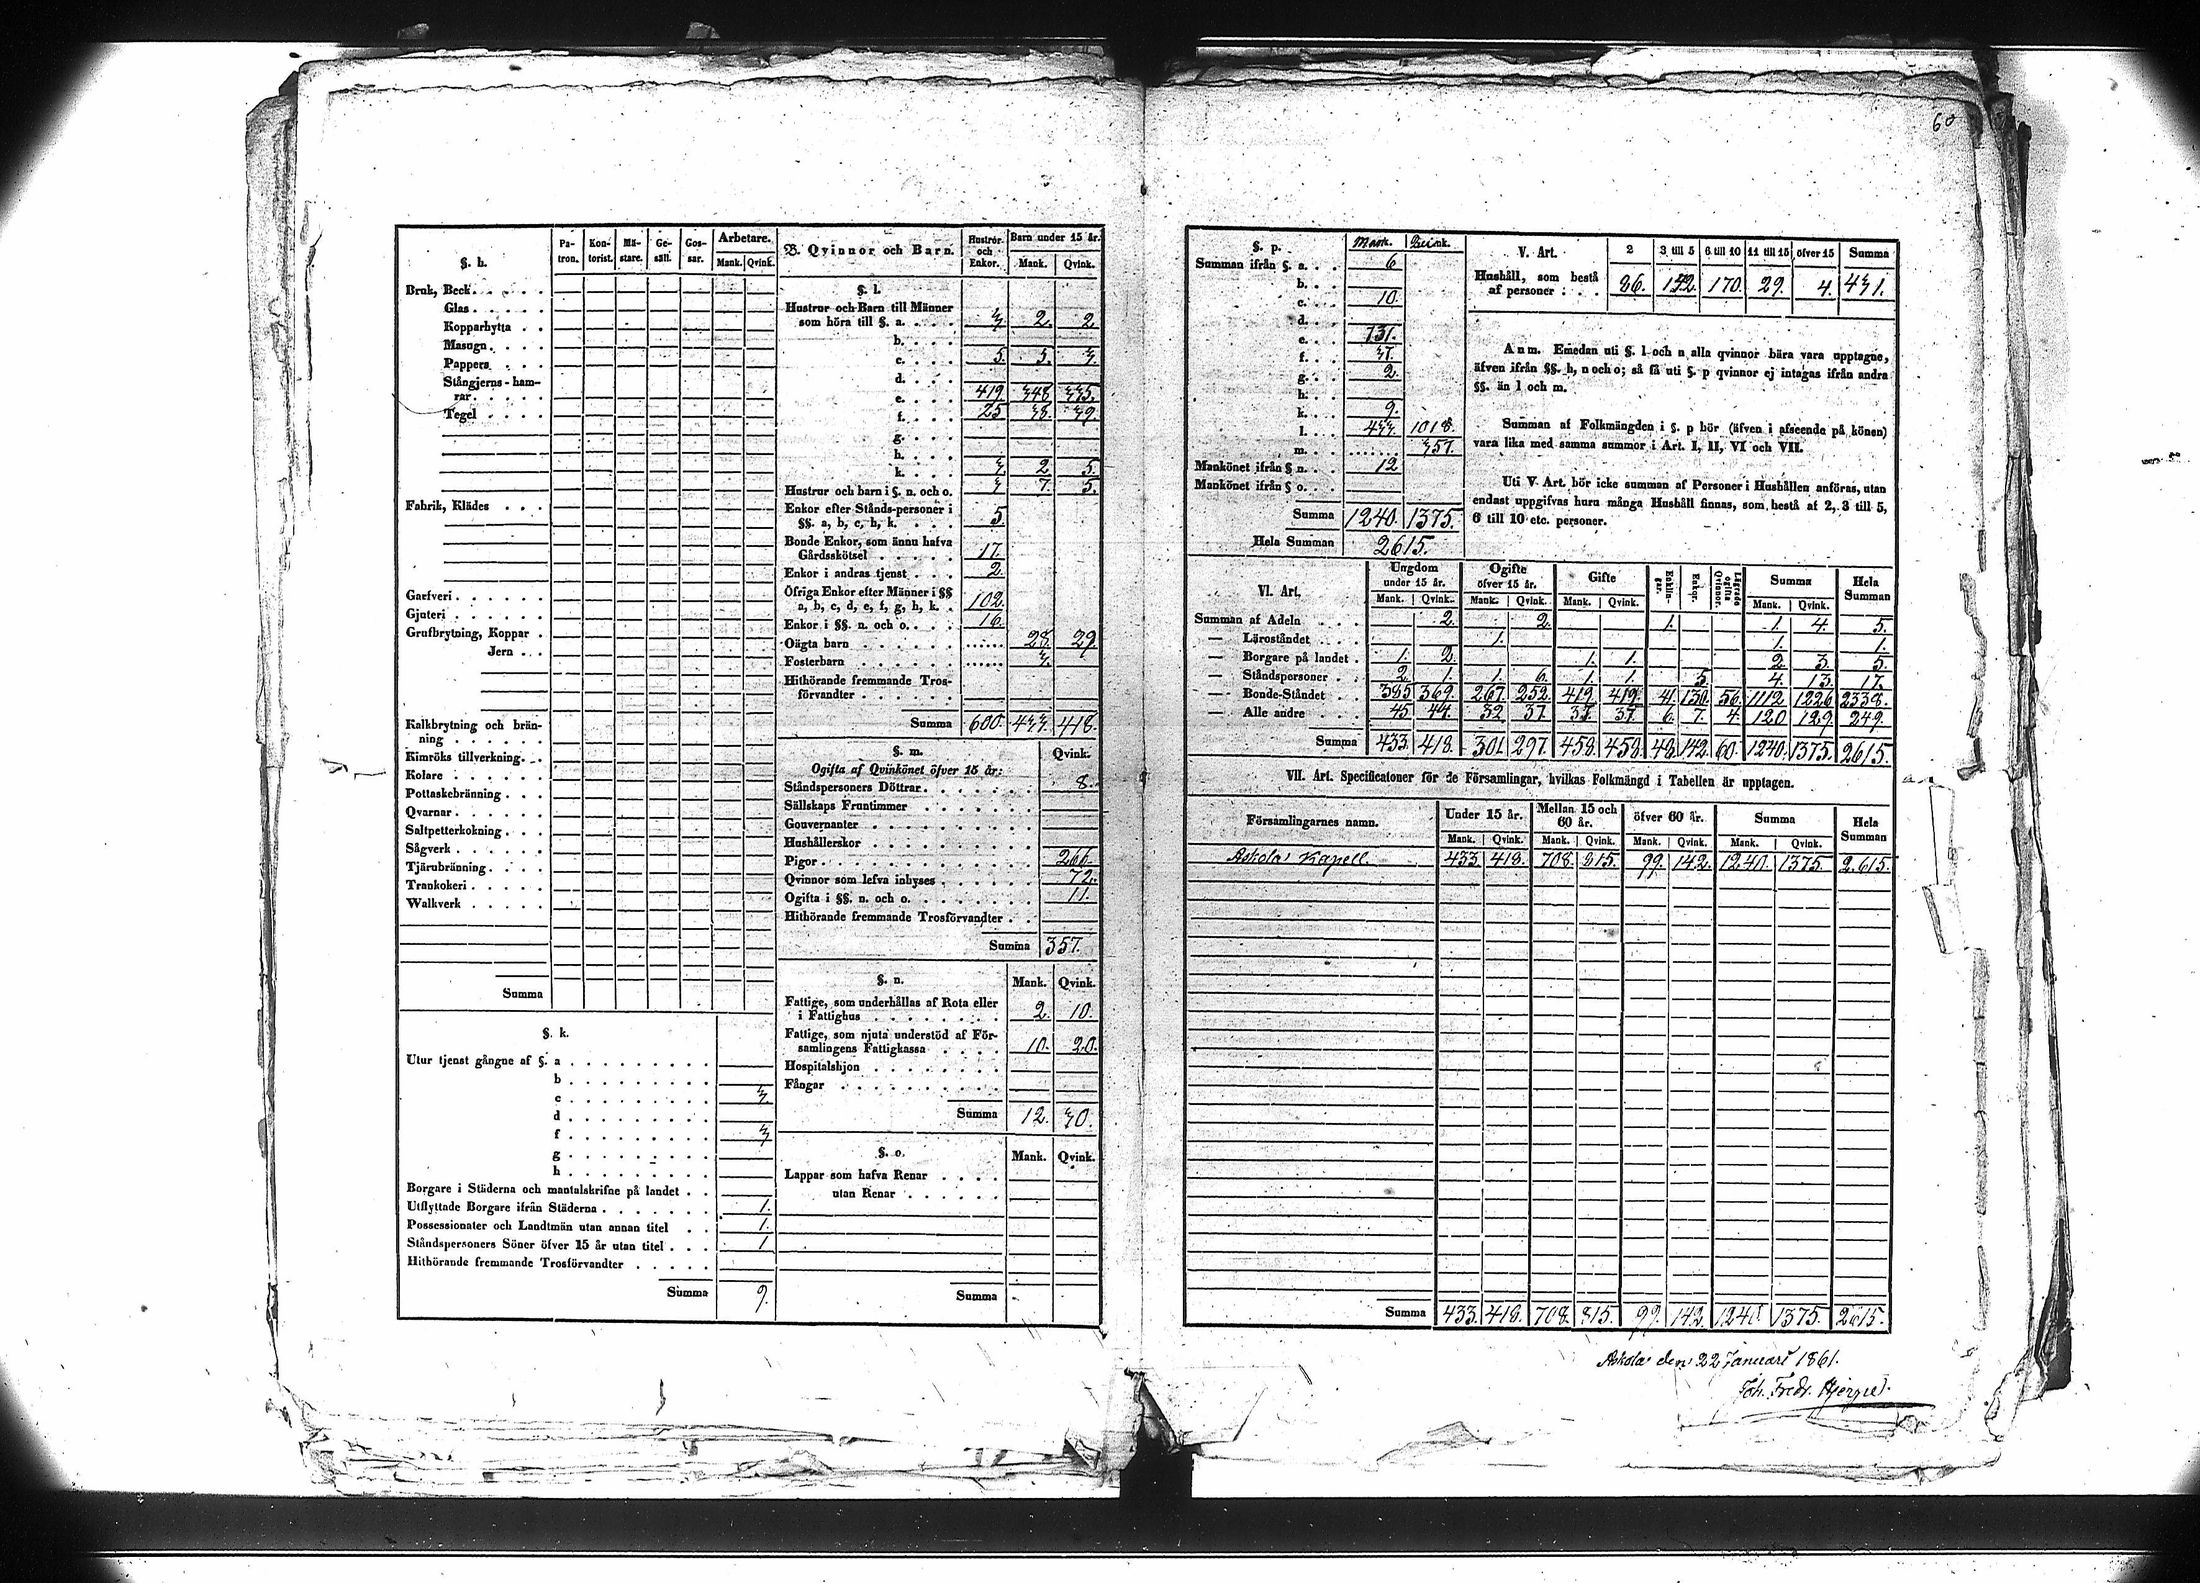 60
§. h.
Pa-tron. Kon-torist. Mä-stare. Ge-säll. Gos-sar. Arbetare. Mank. Qvink.
Bruk, Beck
Glas
Kopparhytta
Masugn
Pappers
Stångjerns-ham-
rar
Tegel
Fabrik, Klädes
Garfveri
Gjuteri
Grufbrytning, Koppar
Jern
Kalkbrytning och brän-
ning
Kimröks tillverkning
Kolare
Pottaskebränning
Qvarnar
Saltpetterkokning
Sågverk
Tjärubränning
Trankokeri
Walkverk
Summa
§. k.
Utur tjenst gångne af §. a
b
c 3.
d
f 3
g
h
Borgare i Städerna och mantalskrifne på landet
Utflyttade Borgare ifrån Städerna 1.
Possessionater och Landtmän utan annan titel 1.
Ståndspersoners Söner öfver 15 år utan titel 1
Hithörande fremmande Trosförvandter
Summa 9.
B. Qvinnor och Barn. Hustrur och Enkor. Barn under 15 år. Mank. Qvink.
§. l.
Hustrur och Barn till Männer
som höra till §. a. 3 2. 2
b.
c. 5. 3. 3.
d.
e. 419 348 335.
f. 25 38. 39.
g.
h.
k. 3. 2 5.
Hustrur och barn i §. n. och o. 3 7. 5.
Enkor efter Stånds-personer i
§§. a, b, c, h, k. 5.
Bonde Enkor, som ännu hafva
Gårdsskötsel 17.
Enkor i andras tjenst 2.
Öfriga Enkor efter Männer i §§
a, b, c, d, e, f, g, h, k. 102.
Enkor i §§. n. och o. 16.
Oägta barn 28. 29.
Fosterbarn 3.
Hithörande fremmande Tros-
förvandter
Summa 600. 433. 418.
§. m. Qvink.
Ogifta af Qvinkönet öfver 15 år:
Ståndspersoners Döttrar 8.
Sällskaps Fruntimmer
Gouvernanter
Hushållerskor
Pigor 266.
Qvinnor som lefva inhyses 72.
Ogifta i §§. n. och o. 11.
Hithörande fremmande Trosförvandter
Summa 357.
§. n. Mank. Qvink.
Fattige, som underhållas af Rota eller
i Fattighus 2. 10.
Fattige, som njuta understöd af För-
samlingens Fattigkassa 10. 20.
Hospitalshjon
Fångar
Summa 12. 30.
§. o. Mank. Qvink.
Lappar som hafva Renar
utan Renar
Summa
§. p. Mank. Qvink.
Summan ifrån §. a. 6
b.
c. 10.
d.
e. 731.
f. 37.
g. 2.
h.
k. 9.
l. 433. 1018.
m. 357.
Mankönet ifrån § n. 12
Mankönet ifrån § o.
Summa 1240. 1375.
Hela Summan 2615.
V. Art. 2 3 till 5 6 till 10 11 till 15 öfver 15 Summa
Hushåll, som bestå
af personer: 86. 142. 170. 29. 4. 431.
Anm. Emedan uti §. l och n alla qvinnor böra vara upptagne,
äfven ifrån §§. h, n och o; så få uti §. p qvinnor ej intagas ifrån andra
§§. än l och m.
Summan af Folkmängden i §. p bör (äfven i afseende på könen)
vara lika med samma summor i Art. I, II, VI och VII.
Uti V. Art. bör icke summan af Personer i Hushållen anföras, utan
endast uppgifvas huru många Hushåll finnas, som bestå af 2, 3 till 5,
6 till 10 etc. personer.
VI. Art. Ungdom under 15 år. Ogifte öfver 15 år. Gifte Enklin-gar. Enkor. Lägrade ogifta Qvinnor. Summa Hela Summan
Mank. Qvink. Mank. Qvink. Mank. Qvink. Mank. Qvink.
Summan af Adeln 2. 2. 1. 1. 4. 5.
— Läroståndet 1. 1. 1.
— Borgare på landet 1. 2. 1. 1. 2. 3. 5.
— Ståndspersoner 2. 1. 1. 6. 1. 1. 5. 4. 13. 17.
— Bonde-Ståndet 385 369. 267. 252. 419. 419. 41. 130. 56. 1112 1226 2338.
— Alle andre 45 44. 32 37. 37. 37. 6. 7. 4. 120 129. 249.
Summa 433. 418. 301. 297. 458. 458. 48. 142. 60. 1240. 1375. 2615.
VII. Art. Specificatoner för de Församlingar, hvilkas Folkmängd i Tabellen är upptagen.
Församlingarnes namn. Under 15 år. Mellan 15 och 60 år. öfver 60 år. Summa Hela Summan
Mank. Qvink. Mank. Qvink. Mank. Qvink. Mank. Qvink.
Askola Kapell. 433 418. 708. 815. 99. 142. 1240. 1375. 2.615.
Summa 433. 418. 708. 815. 99. 142. 1240. 1375. 2615.
Askola den 22 Januari 1861.
Joh. Fredr.